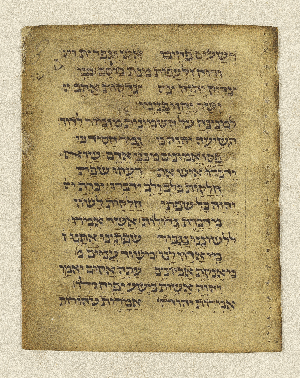 רשעים פחים אש וגפרית ורו
ורוח זלעפות מנת כוסם כי
צדיק יהוה צד צדקות אהב י
ישר יחזו פנימו
למנצח על השמינית מזמור לדוד
הושיעה יהוה כי גמר חסיד כי
פסו אמונים מבני אדם שוא
ידברו איש את רעהו שפת
חלקות בלב ולב ידברו יכרת יה
יהוה כל שפתי חלקות לשון
מדברת גדולות אשר אמרו
ללשוננו נגביר שפתינו אתנו
מי אדון לנו משוד עניים מ
מאנקת אביונים עתה אקום יאמר
יהוה אשית בישע יפיח לו
אמרות יהוה אמרות טהורות